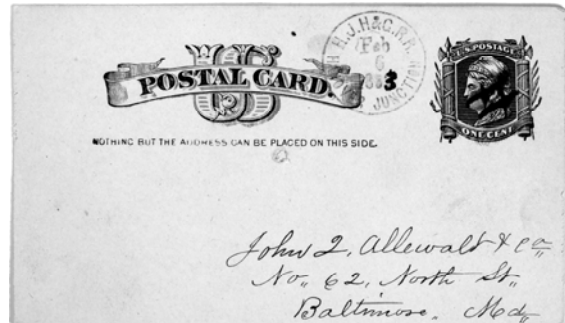 US
POSTAL CARD.
H.J.H&G.R.R.
Feb
6
3
JUNCTION
U.S. POSTAGE
ONE CENT
NOTHING BUT THE ADDRESS CAN BE PLACED ON THIS SIDE.
John Q. Allewalt & Co
No. 62, North St.
Baltimore. Md.